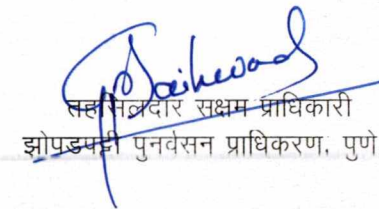 तहसिलदार सक्षम प्राधिकारी
झोपडपट्टी पुनर्वसन प्राधिकरण, पुणे